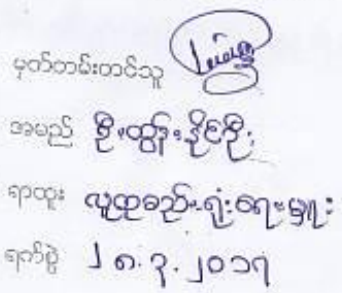 မှတ်တမ်းတင်သူ
အမည် ဦးထွန်းနိုင်ဦး
ရာထူး လူထုစည်းရုံးရေးမှူး
ရက်စွဲ ၂၈.၃.၂၀၁၇